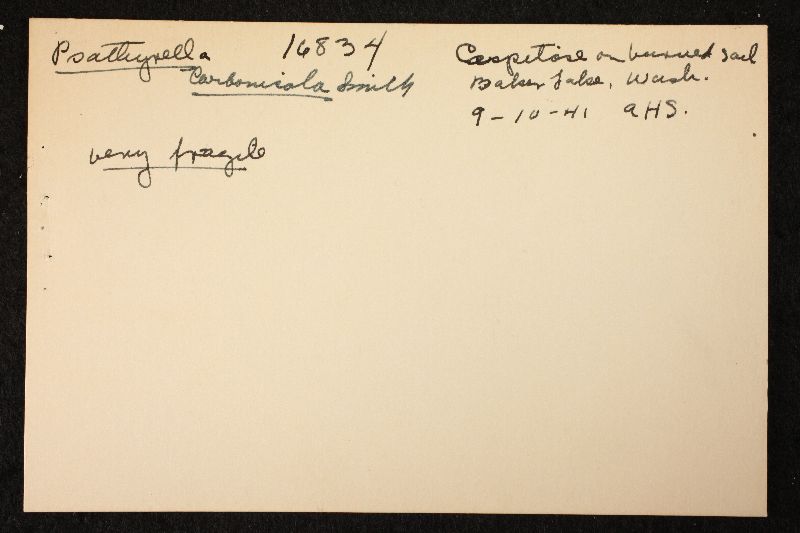 Psathyrella 16834
Carbonicola Smith
very fragile
Cespitose on burned soil
Baker Lake, Wash.
9-10-41 AHS.